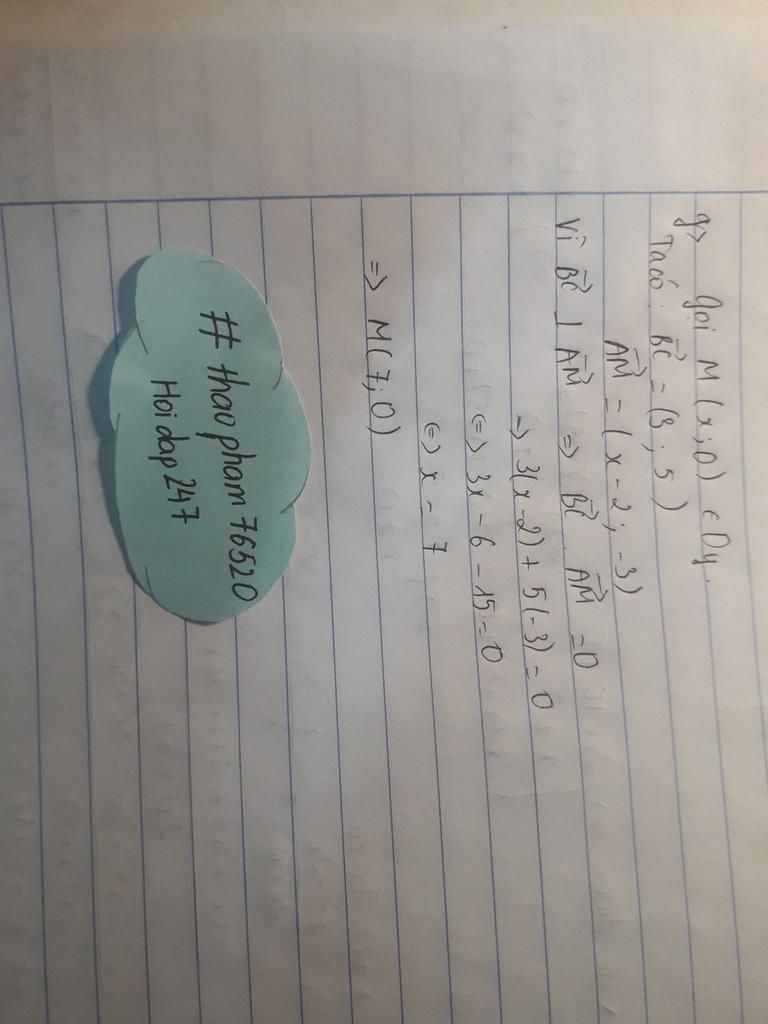 g> Gọi M(x;0) ∈ Oy.
Ta có: BC→ = (3; 5)
AM→ = (x-2; -3)
Vì BC→ ⊥ AM→ => BC→ . AM→ = 0
=> 3(x-2) + 5(-3) = 0
<=> 3x - 6 - 15 = 0
<=> x = 7
=> M(7;0)
# thaopham76520
Hoidap247